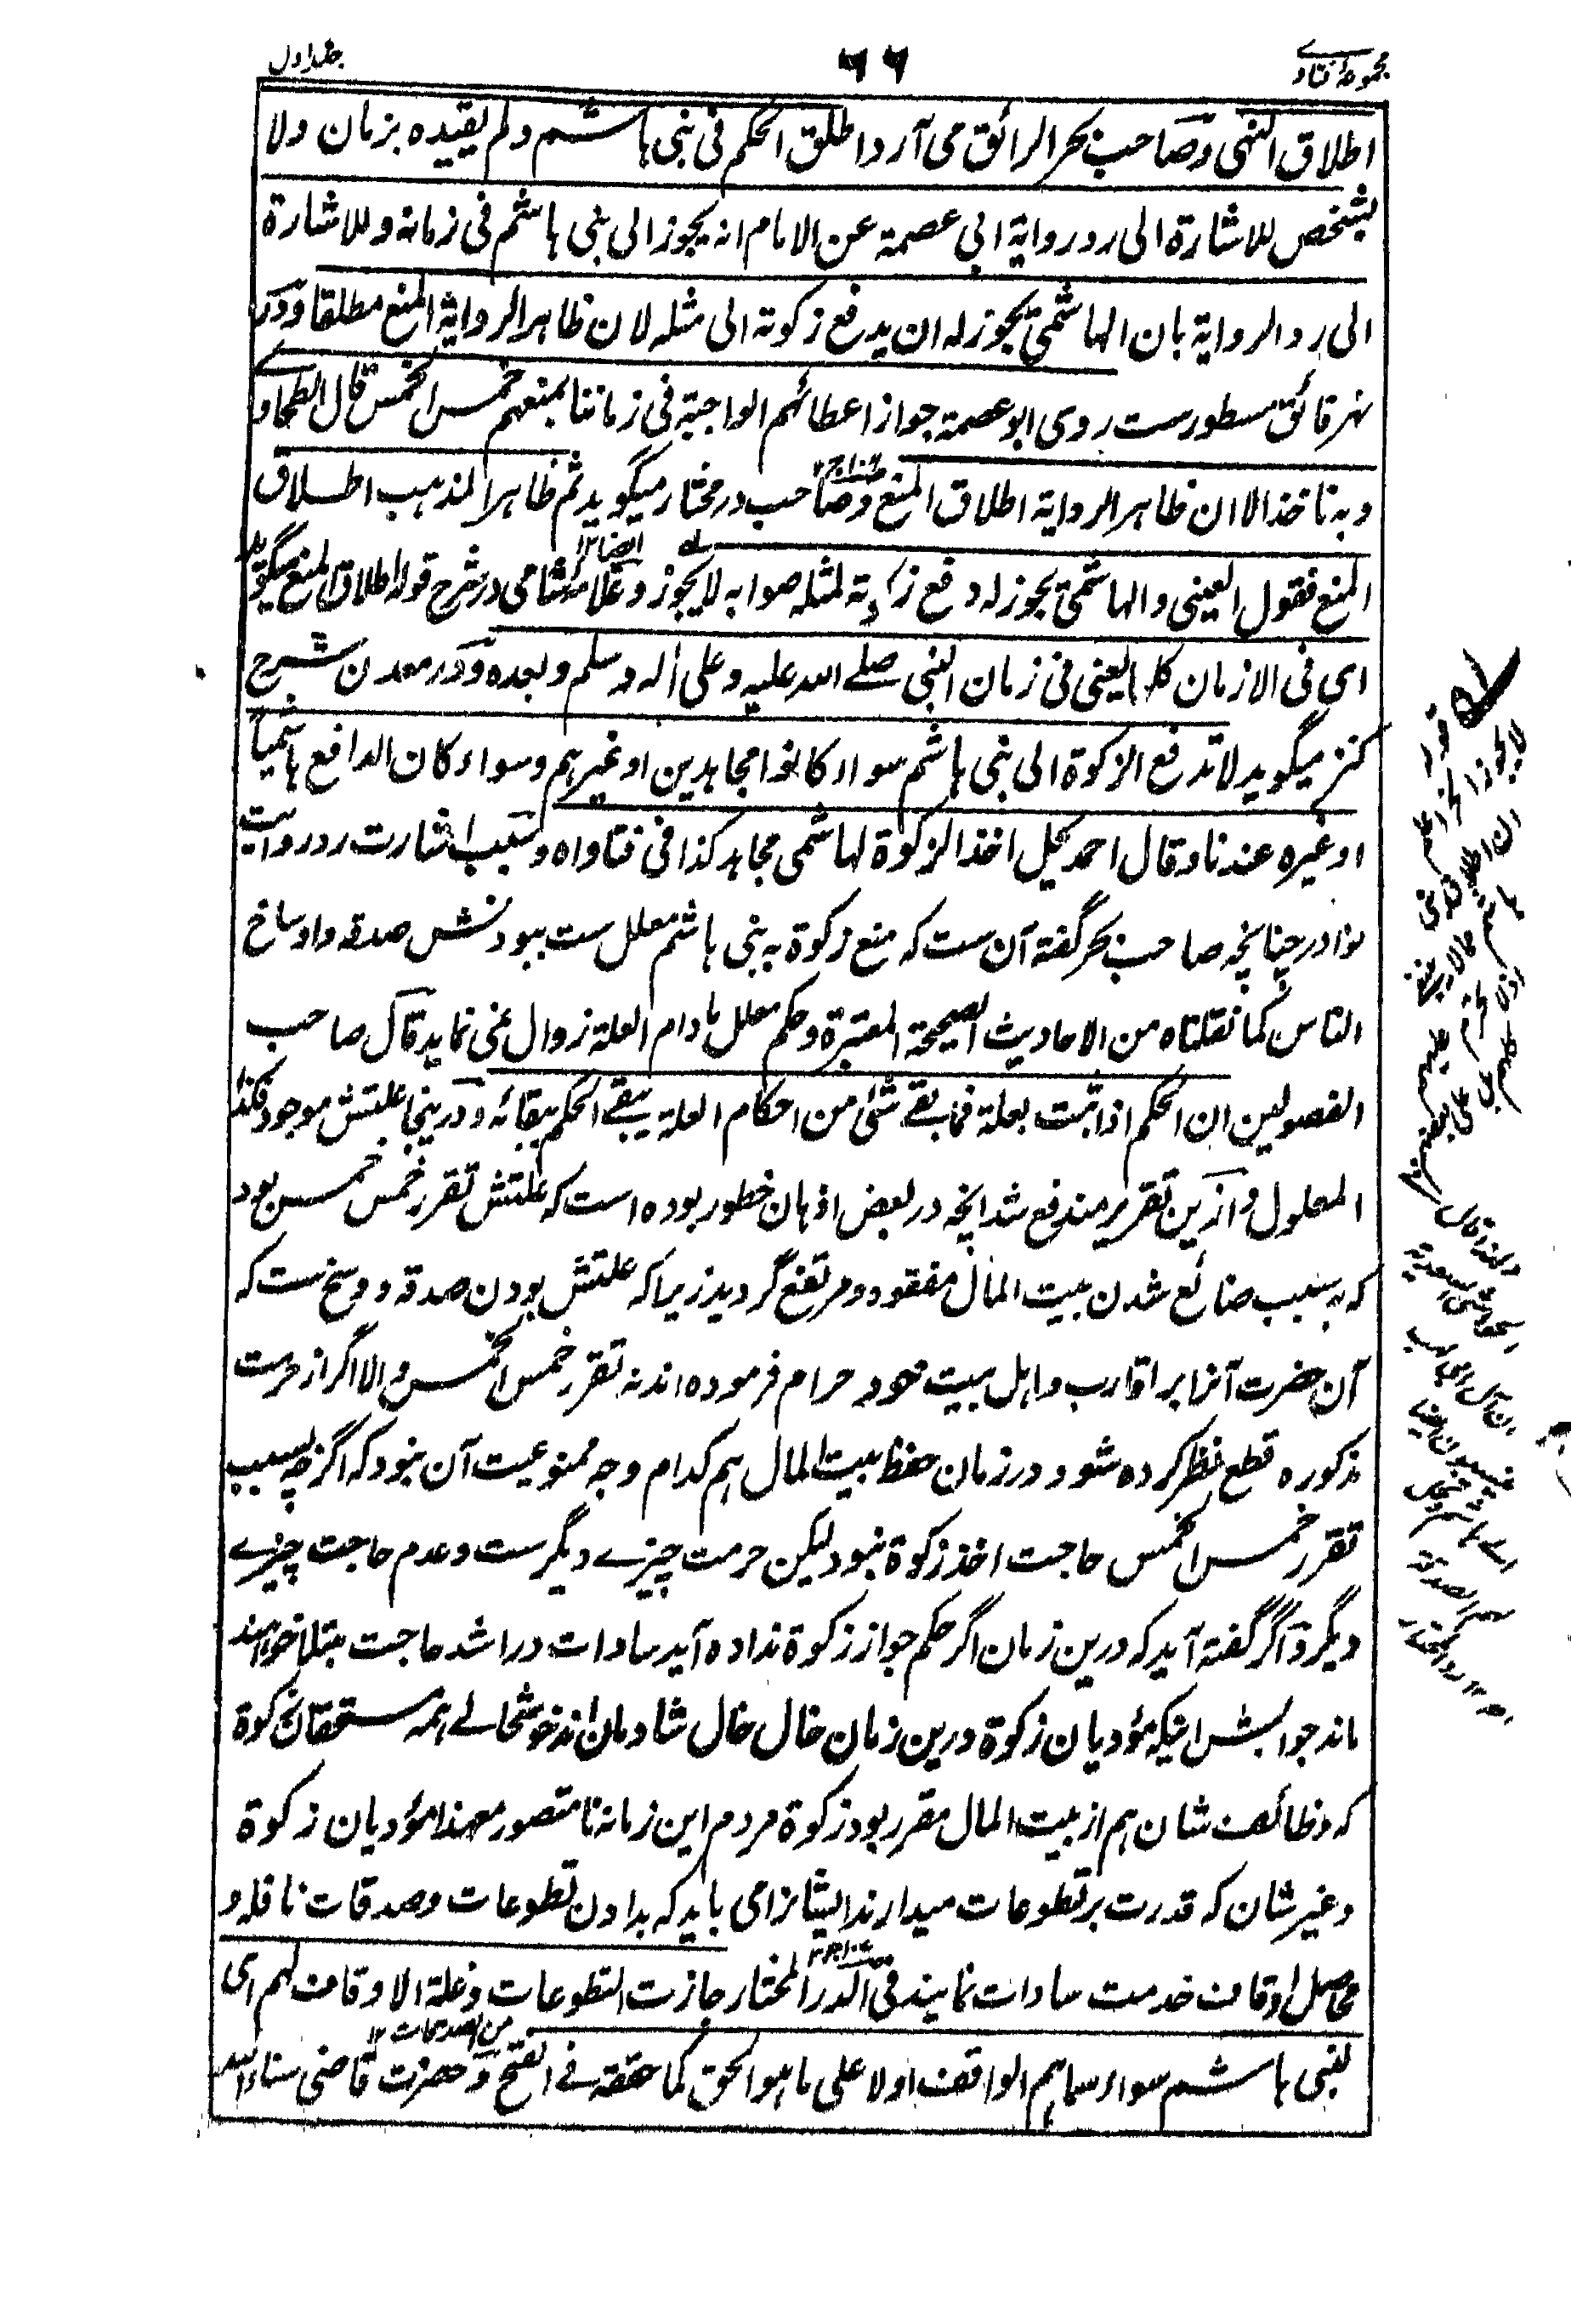 مجموعۂ فتاوے
۶۶
جلد اول
اطلاق النہی وصاحب بحر الرائق می آرد اطلق الحکم فی بنی ہاشم ولم یقیدہ بزمان ولا
بشخص للاشارۃ الی رد روایۃ ابی عصمۃ عن الامام انہ یجوز الی بنی ہاشم فی زمانہ وللاشارۃ
الی رد الروایۃ بان الہاشمی یجوز لہ ان یدفع زکوتہ الی مثلہ لان ظاہر الروایۃ المنع مطلقا ودر
نہر فائق مسطورست روی ابو عصمۃ جواز اعطائہم الواجبۃ فی زماننا بمنعہم خمس الخمس قال الطحاوے
وبہ ناخذ الا ان ظاہر الروایۃ اطلاق المنع وصاحب در مختار میگوید ثم ظاہر المذہب اطلاق
المنع فقول العینی والہاشمی یجوز لہ دفع زکوتہ لمثلہ صوابہ لا یجوز وعلامہ شامی در شرح قولہ اطلاق المنع میگوید
ایضا ۱۲
ای فی الازمان کلہا یعنی فی زمان النبی صلے اللہ علیہ وعلی اٰلہ وسلم وبعدہ ودر معدن شرح
کنز میگوید لا تدفع الزکوۃ الی بنی ہاشم سواء کانوا مجاہدین او غیرہم وسواء کان الدافع ہاشمیاً
او غیرہ عندنا وقال احمد یحل اخذ الزکوۃ لہاشمی مجاہد کذا فی فتاواہ وسبب اشارت رد روایت
نوادر چنانچہ صاحب بحر گفتہ آن ست کہ منع زکوۃ بہ بنی ہاشم معلل ست ببودنش صدقہ واوساخ
الناس کما نقلناہ من الاحادیث الصحیحۃ المعتبرۃ وحکم معلل مادام العلۃ زوال نمی نماید قال صاحب
الفصولین ان الحکم اذا ثبت بعلۃ فما بقے شئ من احکام العلۃ یبقے الحکم ببقائہ ودرینجا علتش موجود فکذا
المعلول وازین تقریر مندفع شد انچہ در بعض اذہان خطور بودہ است کہ علتش تقرر خمس خمس بود
کہ بہ سبب ضائع شدن بیت المال مفقود ومرتفع گردید زیرا کہ علتش بودن صدقہ ووسخ ست کہ
آن حضرت آنرا بر اقارب واہل بیت خود حرام فرمودہ اند نہ تقرر خمس الخمس والا اگر از حرمت
مذکورہ قطع نظر کردہ شود در زمان حفظ بیت المال ہم کدام وجہ ممنوعیت آن نبود کہ اگرچہ بسبب
تقرر خمس الخمس حاجت اخذ زکوۃ نبود لیکن حرمت چیزے دیگرست وعدم حاجت چیزے
دیگر واگر گفتہ آید کہ درین زمان اگر حکم جواز زکوۃ ندادہ آید سادات در اشد حاجت مبتلا خواہند
ماند جوابش اینکہ مؤدیان زکوۃ درین زمان خال خال شادمان اند خوشحالے ہمہ مستحقان زکوۃ
کہ وظائف شان ہم از بیت المال مقرر بود زکوۃ مردم این زمانہ نامتصور معہذا مؤدیان زکوۃ
وغیر شان کہ قدرت بر تطوعات میدارند ایشانرا می باید کہ بدادن تطوعات وصدقات نافلہ و
محاصل اوقاف خدمت سادات نمایند فی الدر المختار جازت التطوعات وغلۃ الاوقاف لہم ای
لبنی ہاشم سواء سماہم الواقف اولا علی ما ہو الحق کما حققہ فے الفتح وحضرت قاضی ثناء اللہ
قولہ
لا یجوز الخ